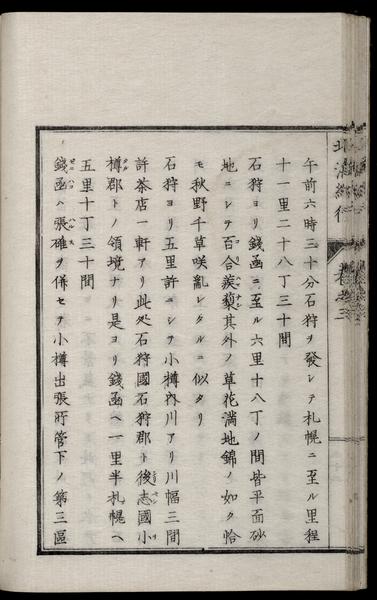 午前六時三十分石狩ヲ發シテ札幌ニ至ル里程
十一里二十八丁三十間
石狩ヨリ錢函ニ至ル六里十八丁ノ間皆平面砂
地ニシテ百合蒺藜其外ノ草花滿地錦ノ如ク恰
モ秋野千草咲亂レタルニ似タリ
石狩ヨリ五里許ニシテ小樽内川アリ川幅三間
許茶店一軒アリ此処石狩國石狩郡ト後志國小
樽郡トノ領境ナリ是ヨリ錢函ヘ一里半札幌ヘ
五里十丁三十間
錢函ハ張碓ヲ併セテ小樽出張所管下ノ第三區